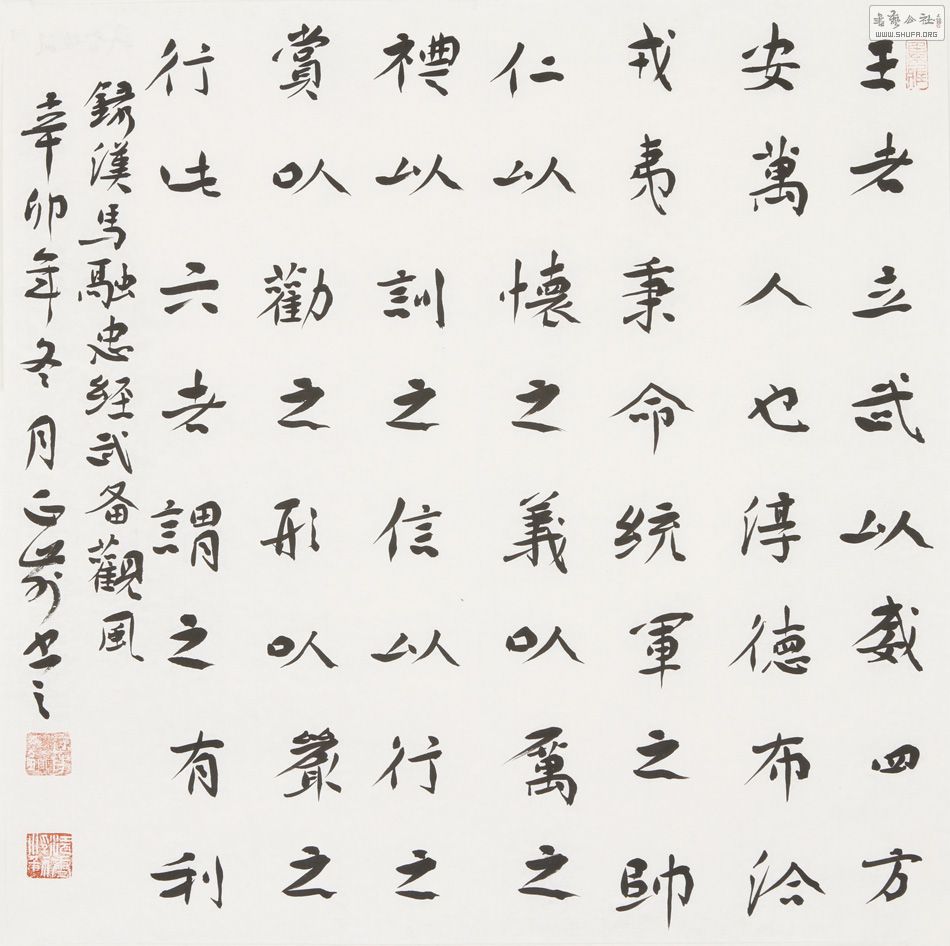 王者立武以威四方
安萬人也淳德布洽
戎夷秉命統軍之帥
仁以懷之義以厲之
禮以訓之信以行之
賞以勸之形以嚴之
行此六者謂之有利
錄漢馬融忠经武备觀風
辛卯年冬月正书之
書藝公社
WWW.SHUFA.ORG